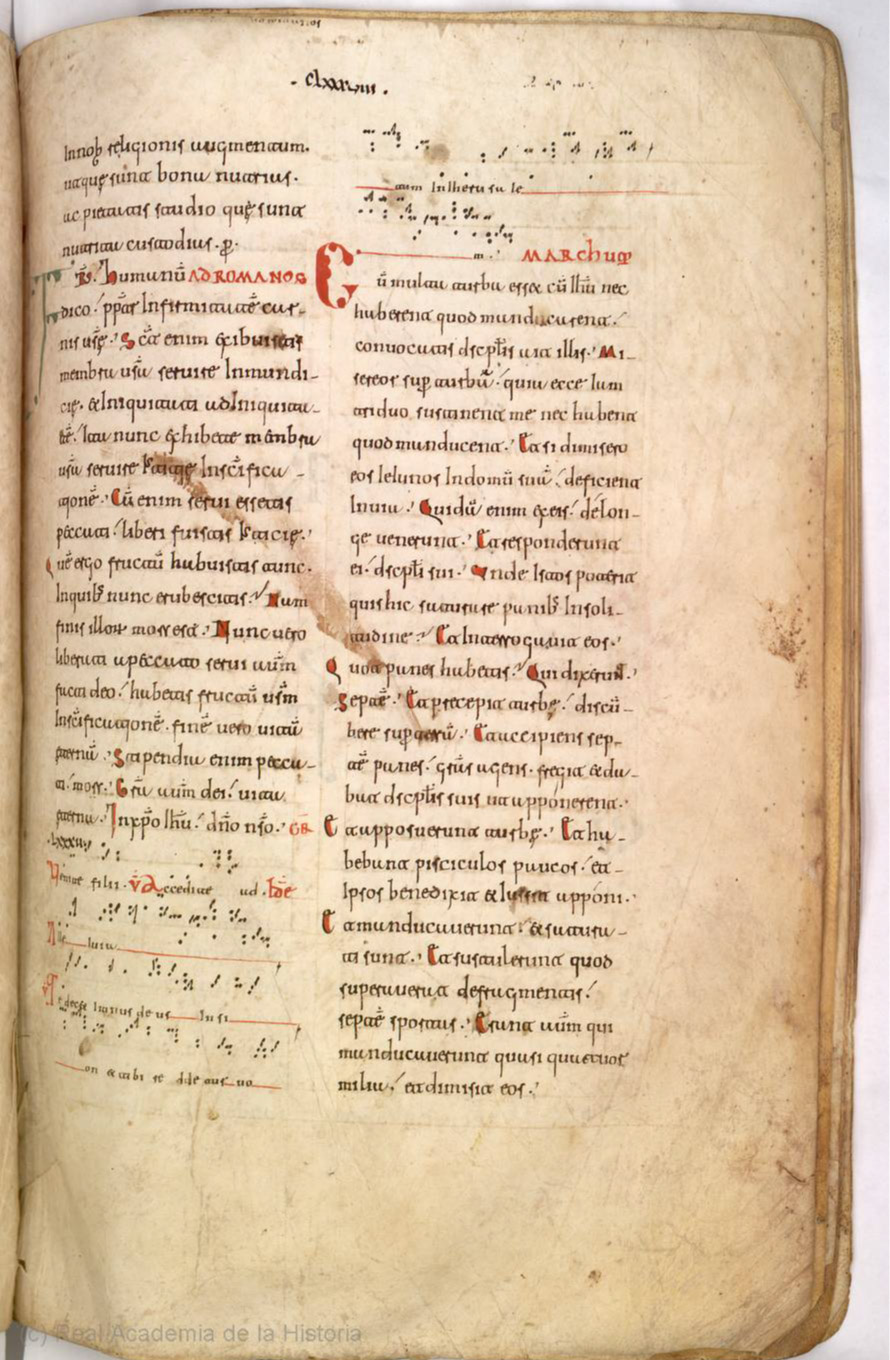 · clxxxviii ·
In nob religionis augmentum.
ut que sunt bona nutrias.
ac pietatis studio que sunt
nutrita custodias · p̄ ·
humanū AD ROMANOS
dico · ppt̄ Infirmitatē car-
nis ūsē · Sc̄a enim exibuistis
membra ūsā seruire Inmundi-
cie · et Iniquitati ad Iniquita-
tē · Ita nunc exhibete mēnbra
ūsā seruire Insc̄ifica-
tionē · Cū enim serui essetis
peccati · liberi fuistis
uē ergo fructū habuistis tunc ·
Inquib nunc erubescitis · Nam
finis illor mors est · Nunc uero
liberati a peccato serui aūm
facti deo · habetis fructū ūsm
Insc̄ificationē · finē uero uitā
eternā · Stipendia enim pecca-
ti · mors · Grā aūm dei · uita
eterna · In xp̄o Ihū · dn̄o nso · GR
lxxxiiii
Uenite filii · V Accedite ad
Alle luia
V
Te decet Imnus deus In si
on et tibi re dde tur uo
tum In Iheru sa le
m · MARCHUM
Cū multa turba esset cū Ihū nec
haberent quod manducarent ·
conuocatis dscplis ait illis · Mi-
sereor sup turbā · quia ecce Iam
triduo sustinent me nec habent
quod manducent · Et si dimisero
eos Ieiunos In domū suā · deficient
In uia · Quidā enim ex eis · de lon-
ge uenerunt · Et responderunt
ei · dscpli sui · Unde Istos poterit
quis hic saturare panib In soli-
tudine · Et Interrogauit eos ·
Quot panes habetis · Qui dixerunt ·
Septē · Et precepit turbe · discū-
bere sup terrā · Et accipiens sep-
tē panes · grās agens · fregit et da-
bat dscplis suis ut apponerent ·
Et apposuerunt turbe · Et ha-
bebant pisciculos paucos · et
Ipsos benedixit et Iussit apponi ·
Et manducauerunt · et satura-
ti sunt · Et sustulerunt quod
superauerat de fragmentis ·
septē sportas · Erant aūm qui
manducauerant quasi quatuor
milia · et dimisit eos ·
(c) Real Academia de la Historia